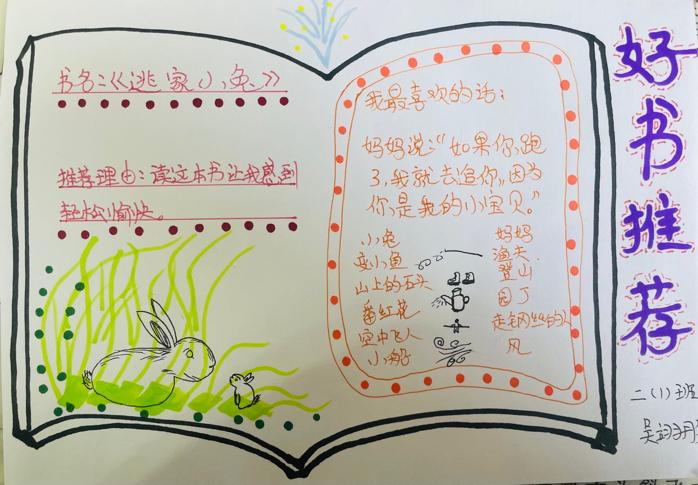 好书推荐
书名:《逃家小兔》
推荐理由:读这本书让我感到
轻松愉快。
我最喜欢的话:
妈妈说:“如果你跑
了,我就去追你,因为
你是我的小宝贝。”
小兔 妈妈
变小鱼 渔夫
山上的石头 登山
番红花 园丁
空中飞人 走钢丝的人
小海子 风
二(1)班